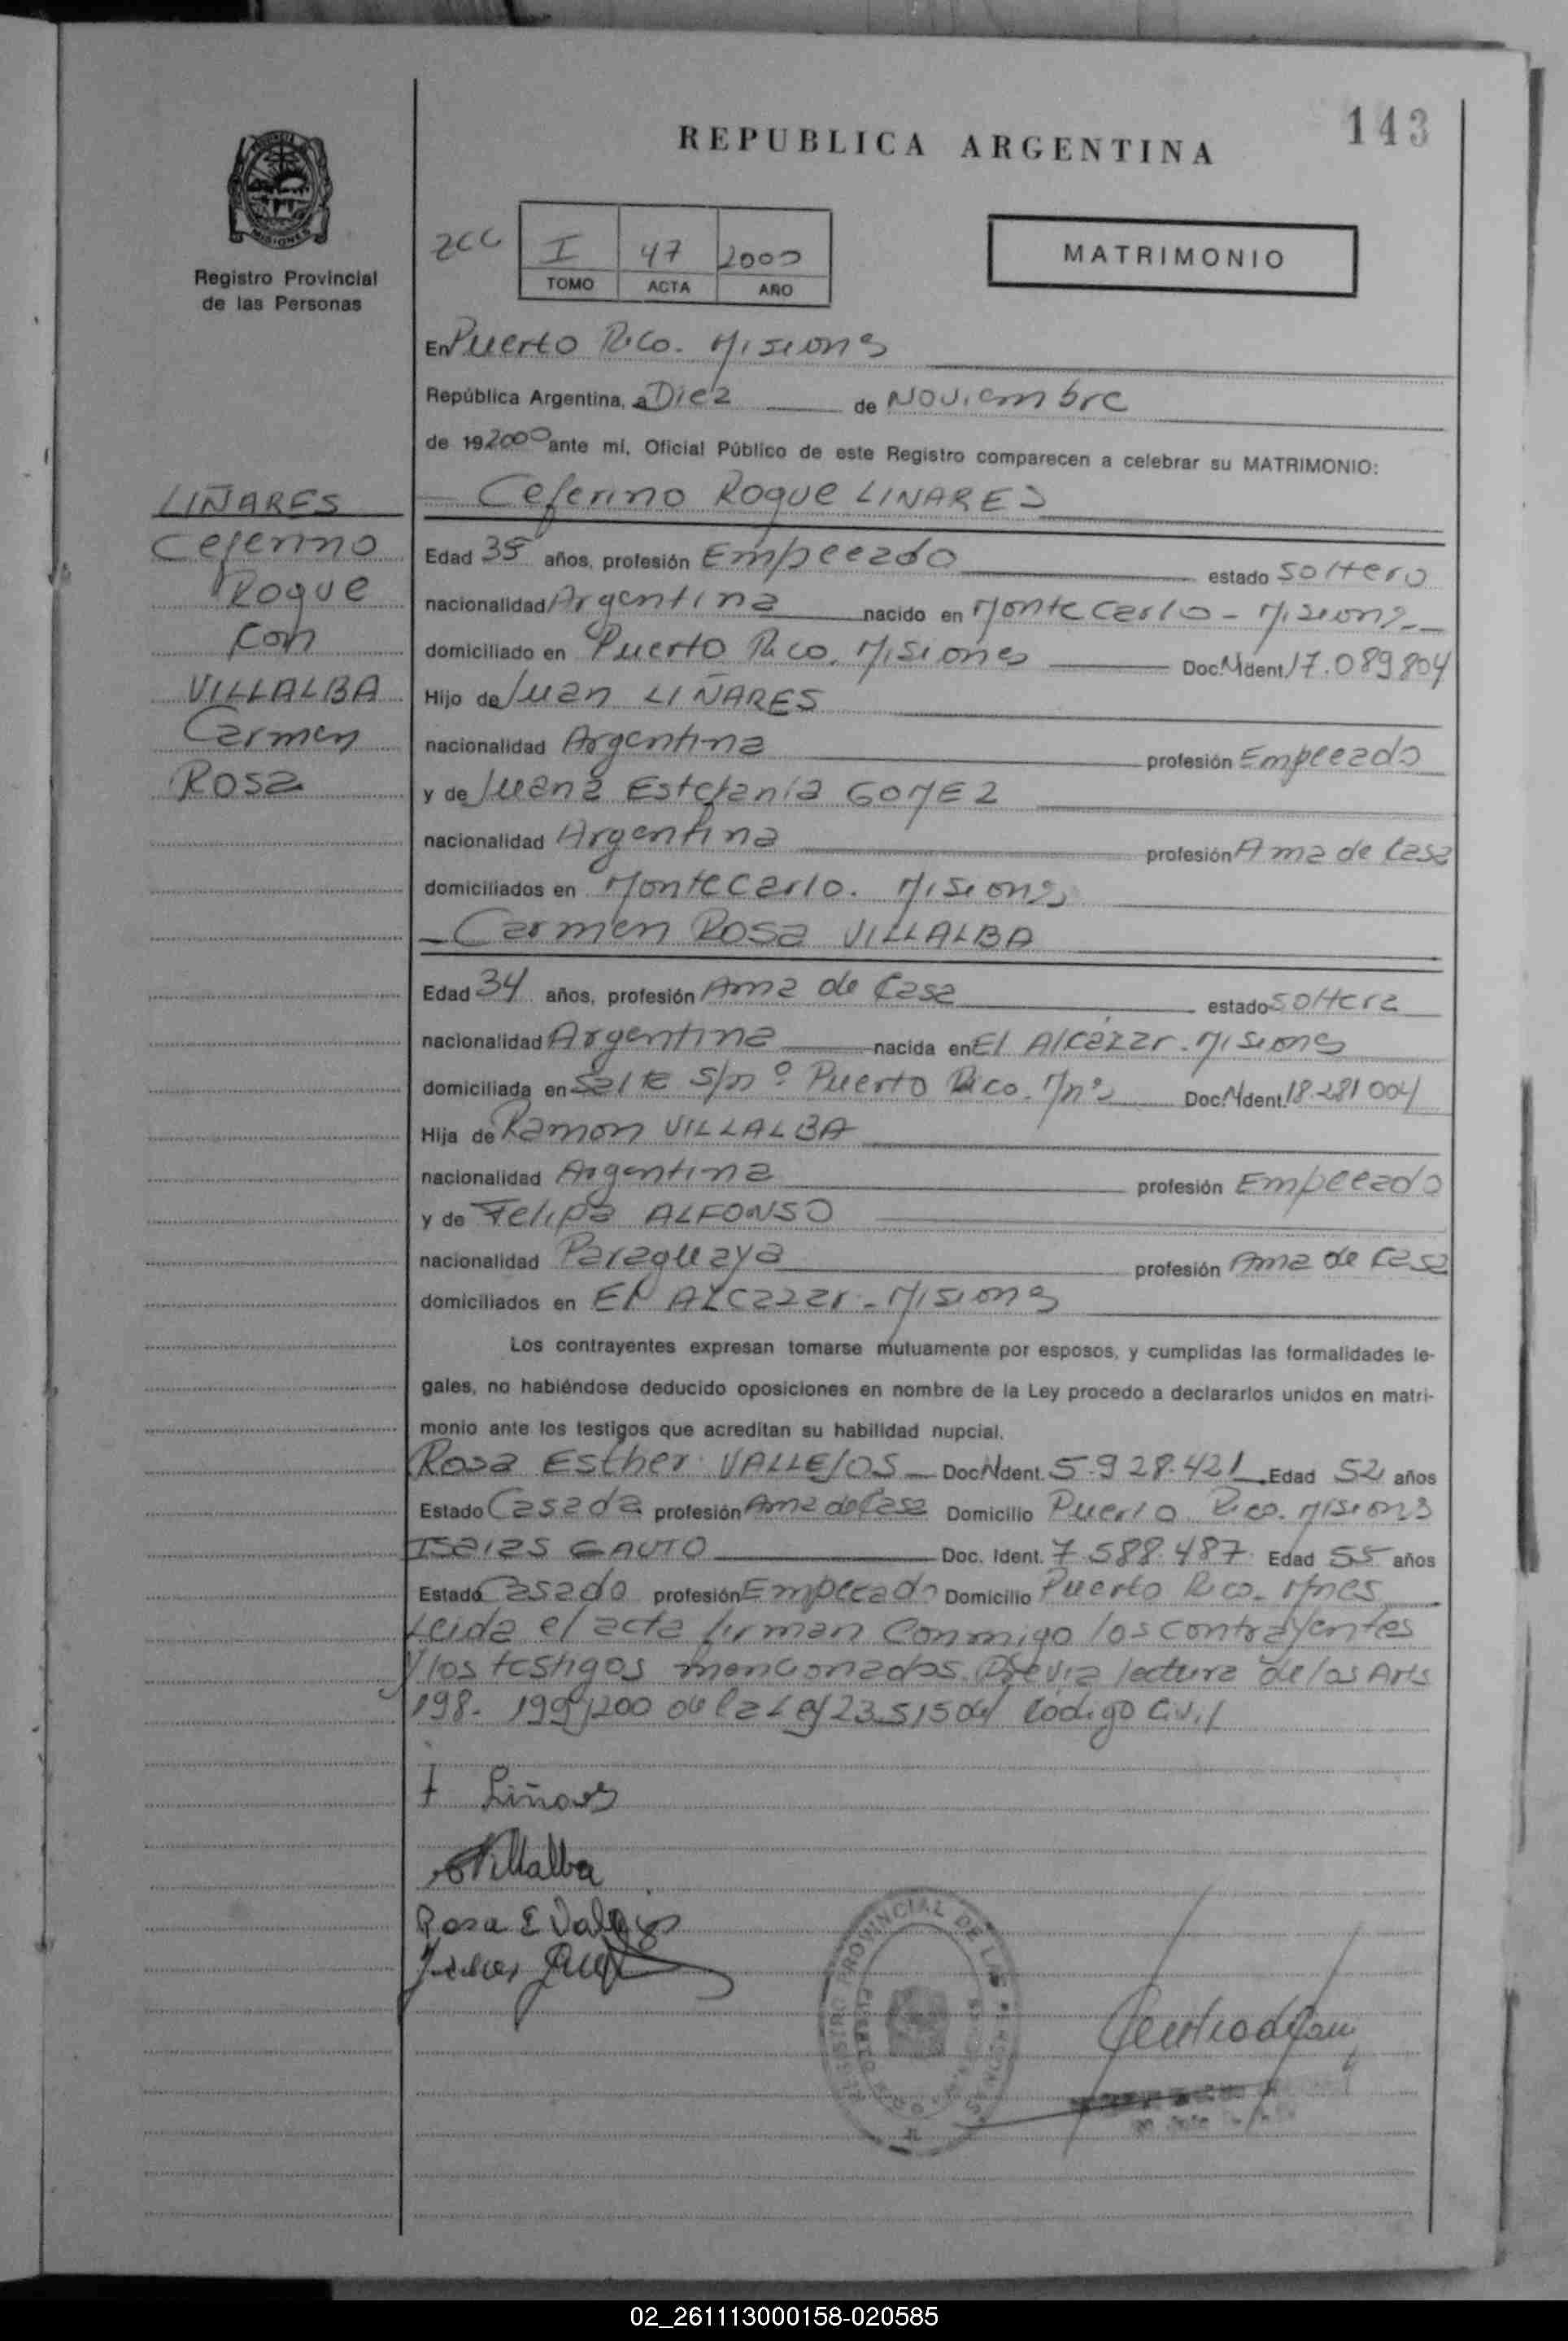 143
REPUBLICA ARGENTINA
MISIONES
Registro Provincial
de las Personas
I 47 2000
TOMO ACTA AÑO
MATRIMONIO
En Puerto Rico. Misiones
República Argentina, a Diez de Noviembre
de 192000 ante mí, Oficial Público de este Registro comparecen a celebrar su MATRIMONIO:
Ceferino Roque LIÑARES
LIÑARES
Ceferino
Roque
con
VILLALBA
Carmen
Rosa
Edad 35 años, profesión Empleado estado soltero
nacionalidad Argentina nacido en Montecarlo - Misiones
domiciliado en Puerto Rico. Misiones Doc.N Ident. 17.089804
Hijo de Juan LIÑARES
nacionalidad Argentina profesión Empleado
y de Juana Estefanía GOMEZ
nacionalidad Argentina profesión Ama de Casa
domiciliados en Montecarlo. Misiones
Carmen Rosa VILLALBA
Edad 34 años, profesión Ama de Casa estado soltera
nacionalidad Argentina nacida en El Alcázar. Misiones
domiciliada en Salta s/nº Puerto Rico. Mnes Doc.N Ident. 18.281004
Hija de Ramon VILLALBA
nacionalidad Argentina profesión Empleado
y de Felipa ALFONSO
nacionalidad Paraguaya profesión Ama de Casa
domiciliados en El Alcazar - Misiones
Los contrayentes expresan tomarse mutuamente por esposos, y cumplidas las formalidades le-
gales, no habiéndose deducido oposiciones en nombre de la Ley procedo a declararlos unidos en matri-
monio ante los testigos que acreditan su habilidad nupcial.
Rosa Esther VALLEJOS Doc.N Ident. 5.928.421 Edad 52 años
Estado Casada profesión Ama de Casa Domicilio Puerto Rico. Misiones
Isaias GAUTO Doc. Ident. 7.588.487 Edad 55 años
Estado Casado profesión Empleado Domicilio Puerto Rico. Mnes
Leida el acta firman conmigo los contrayentes
y los testigos mencionados. Previa lectura de los Arts
198. 199 y 200 de la Ley 23.515 del Código Civil
Liñares
Villalba
Rosa E Vallejos
REGISTRO PROVINCIAL DE LAS
02_261113000158-020585